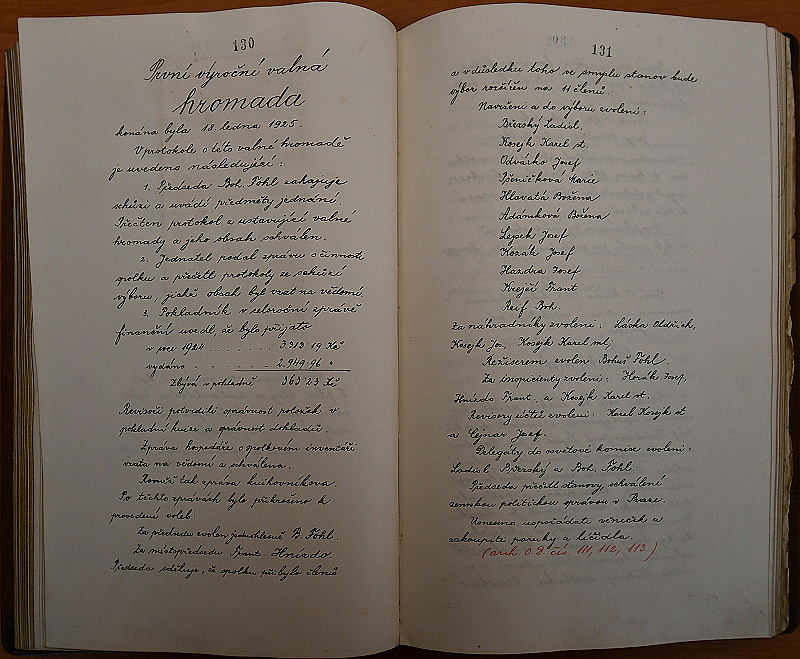 130
První výročné valná
hromada
konána byla 18. ledna 1925.
V protokole o této valné hromadě
je uvedeno následující:
1. Předseda Boh. Föhl zahajuje
schůzi a uvádí předměty jednání.
Přečten protokol z ustavující valné
hromady a jeho obsah schválen.
2. Jednatel podal zprávu o činnosti
spolku a přečtl protokoly ze schůzí
výboru, jichž obsah byl vzat na vědomí.
3. Pokladník v celoroční zprávě
finanční uvedl, že bylo přijato
v roce 1924 . . . . . . . 3.313·19 Kč
vydáno . . . . . 2.949·96 "
Zbývá v pokladně 363·23 Kč
Revisoři potvrdili správnost položek v
pokladní knize a správnost dokladů.
Zpráva hospodáře o spolkovém inventáři
vzata na vědomí a schválena.
Rovněž tak zpráva knihovníkova.
Po těchto zprávách bylo přikročeno k
provedení voleb:
Za předsedu zvolen jednohlasně B. Föhl.
Za místopředsedu Frant. Hnízdo.
Předseda sděluje, že spolku přibylo členů
131
a v důsledku toho ve smyslu stanov bude
výbor rozšířen na 11 členů.
Navrženi a do výboru zvoleni:
Březský Ladisl.
Kosejk Karel st.
Odvárko Josef
Pšeničková Marie
Hlavatá Božena
Adámková Božena
Lepek Josef
Kozák Josef
Hazdra Josef
Krejčí Frant
Reif Boh.
Za náhradníky zvoleni: Láska Oldřich,
Kosejk Jos, Kosejk Karel ml,
Režiserem zvolen Bohuš Föhl.
Za inspicienty zvoleni: Horák Josef,
Hnízdo Frant., a Kosejk Karel st.
Revisory účtů zvoleni: Karel Kosejk st
a Cejnar Josef.
Delegáty do osvětové komise zvoleni:
Ladisl Březský a Boh. Föhl.
Předseda přečtl stanovy schválené
zemskou politickou správou v Praze.
Usneseno uspořádati věneček a
zakoupiti paruky a líčidla.
(arch. O 9. čís. 111, 112, 113.)